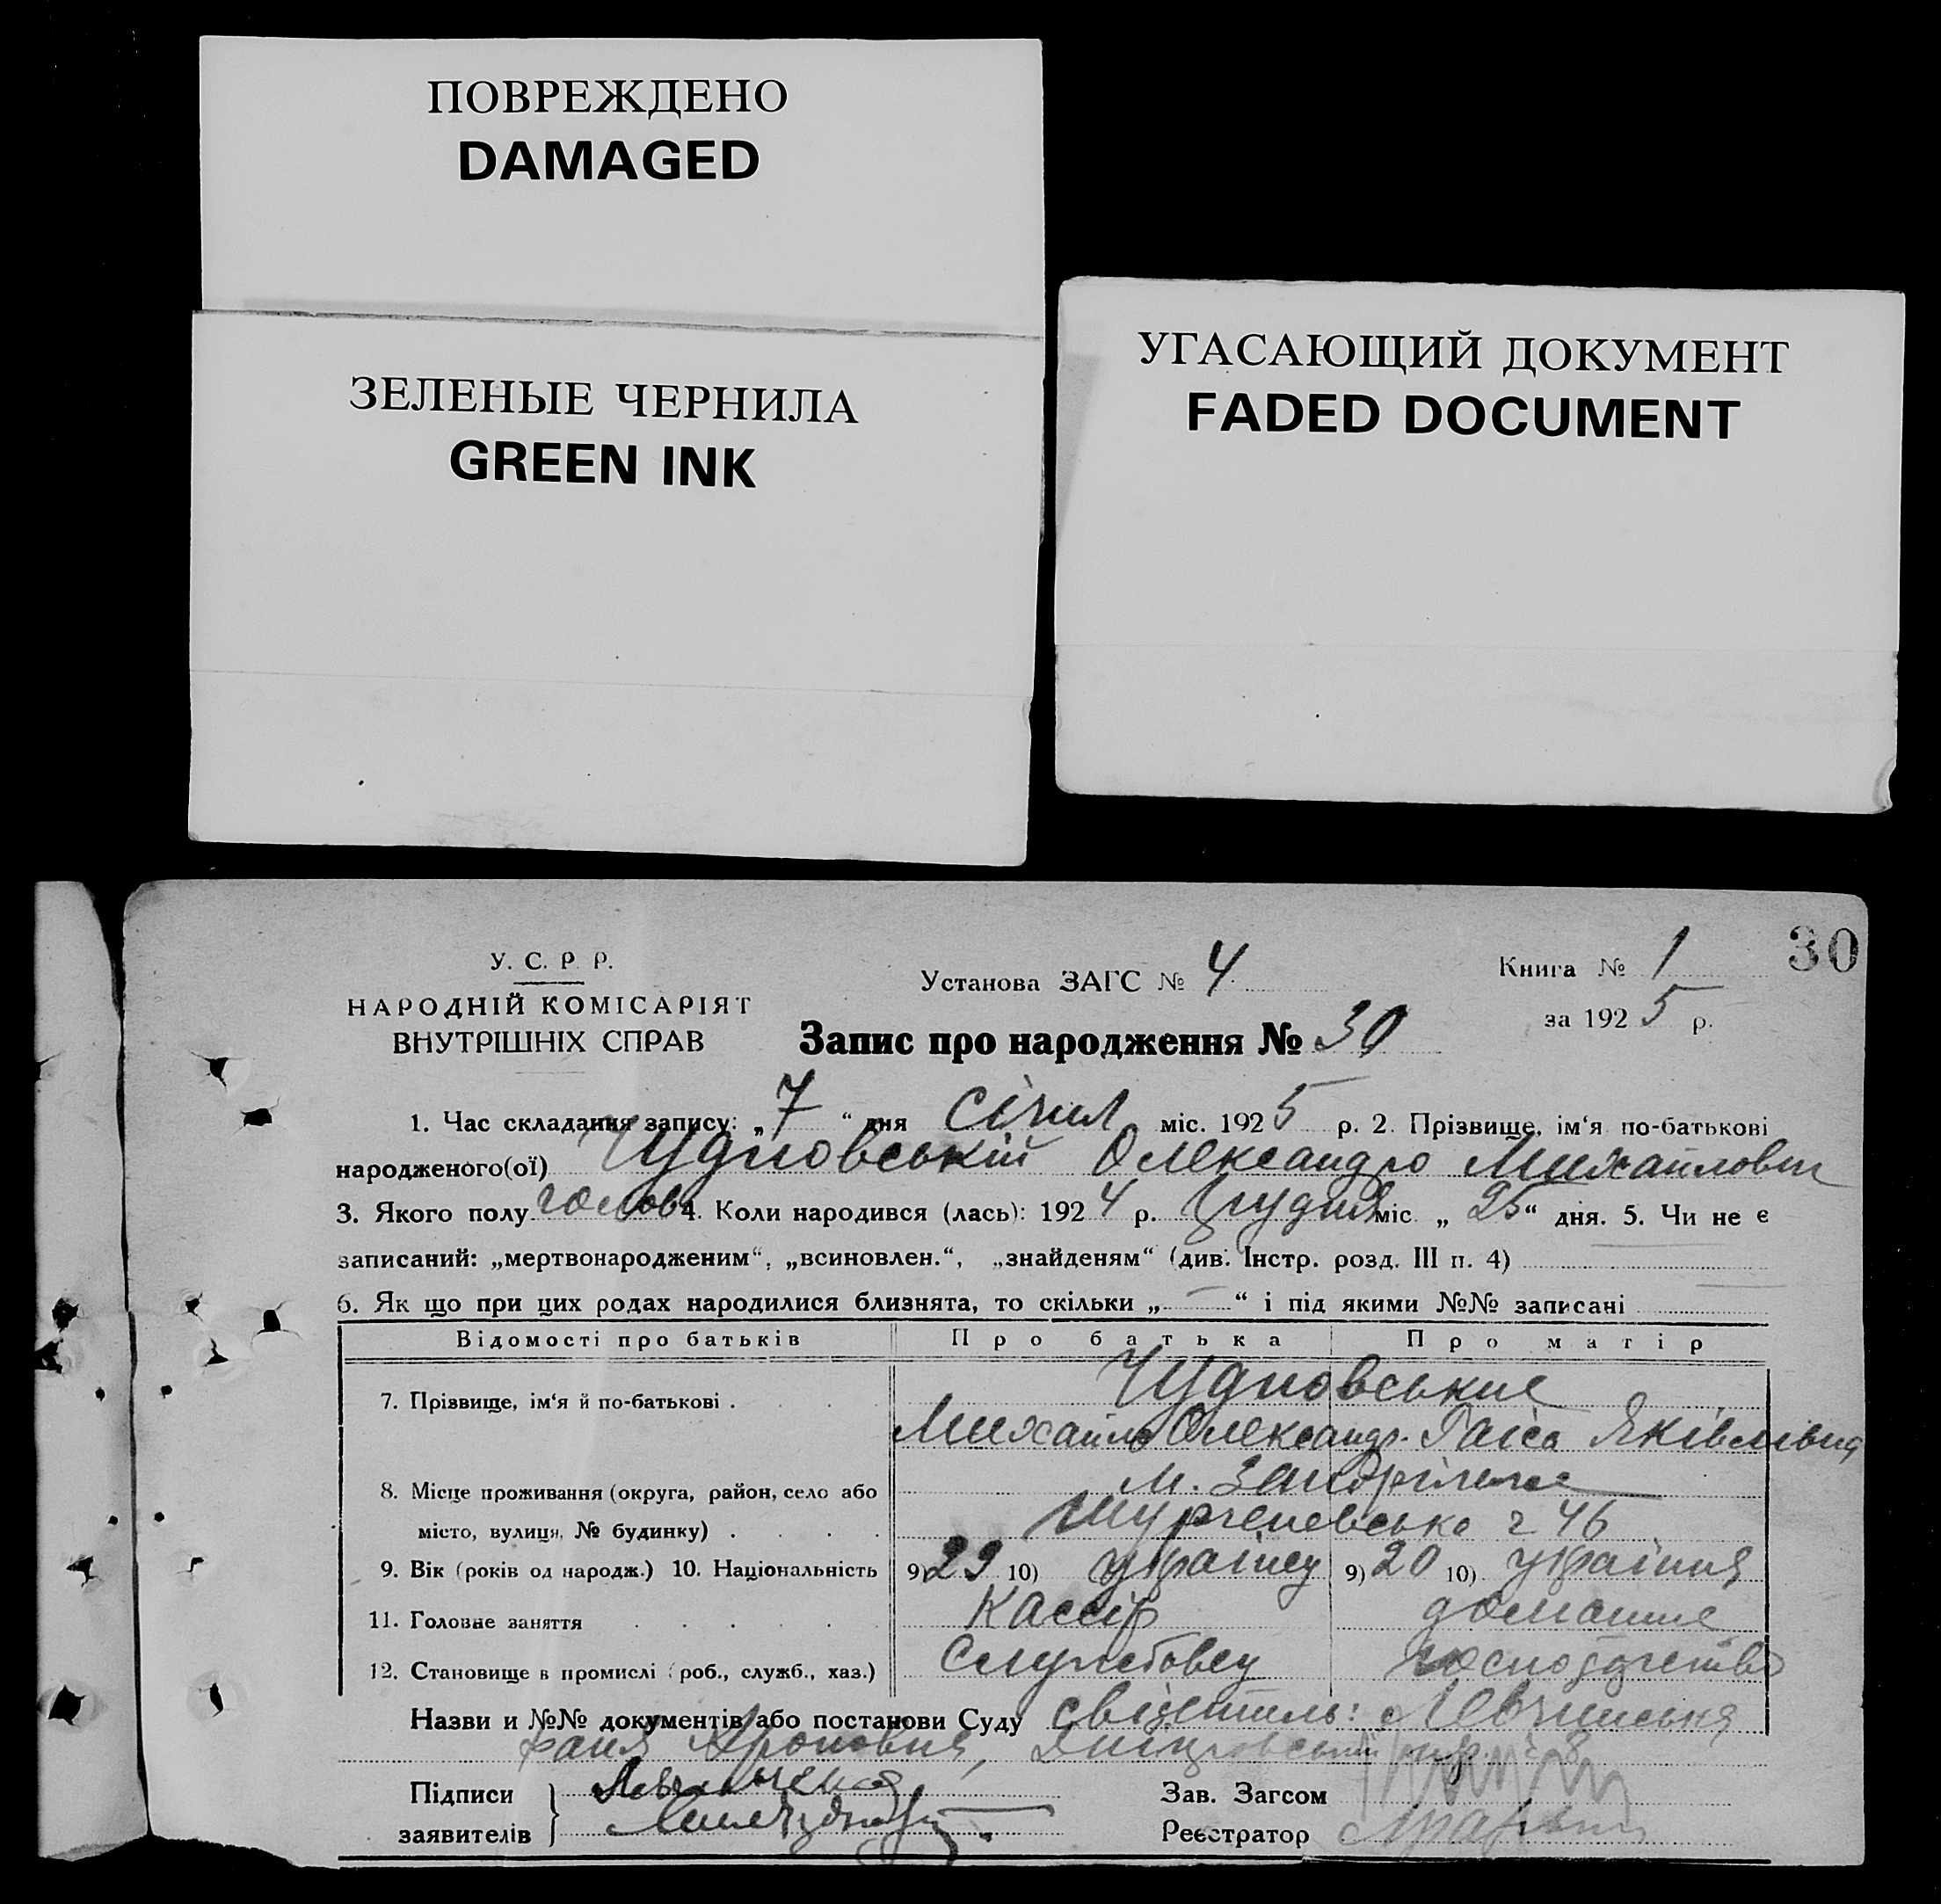 ПОВРЕЖДЕНО
DAMAGED
ЗЕЛЕНЫЕ ЧЕРНИЛА
GREEN INK
УГАСАЮЩИЙ ДОКУМЕНТ
FADED DOCUMENT
30
У. С. Р. Р.
НАРОДНІЙ КОМІСАРІЯТ
ВНУТРІШНІХ СПРАВ
Установа ЗАГС № 4
Книга № 1
за 1925 р.
Запис про народження № 30
1. Час складання запису: „7“ дня Січня міс. 1925 р. 2. Прізвище, ім‘я по-батькові
народженого(ої) Чудновський Олександр Михайлович
3. Якого полу чолов 4. Коли народився (лась): 1924 р. Грудня міс. „25“ дня. 5. Чи не є
записаний: „мертвонародженим“, „всиновлен.“, „знайденям“ (див. Інстр. розд. III п. 4)
6. Як що при цих родах народилися близнята, то скільки „—“ і під якими №№ записані
Відомості про батьків Про батька Про матір
7. Прізвище, ім‘я й по-батькові . Чудновський
Михайло Олександр. Раіса Яківлівна
8. Місце проживання (округа, район, село або
місто, вулиця, № будинку) . . . . 46
9. Вік (років од народж.) 10. Національність 9) 29 10) українец 9) 20 10) україния
11. Головне заняття Кассір домашнє
12. Становище в промислі (роб., служб., хаз.) Службовец господарство
Назви и №№ документів або постанови Суду свідетель: Левчинська
Фаня Ароновна,
Підписи
заявителів
Зав. Загсом
Реєстратор